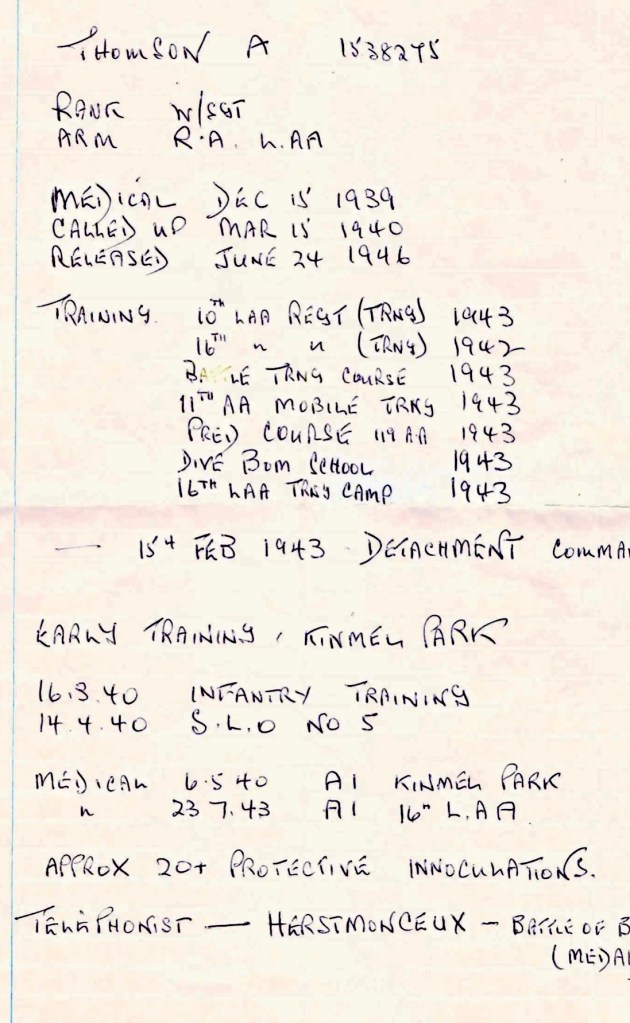 THOMSON A 1538275
RANK W/SGT
ARM R.A. L.AA
MEDICAL DEC 15 1939
CALLED UP MAR 15 1940
RELEASED JUNE 24 1946
TRAINING. 10TH LAA REGT (TRNG) 1943
16TH " " (TRNG) 1942
BATTLE TRNG COURSE 1943
11TH AA MOBILE TRNG 1943
PRED COURSE 119 AA 1943
DIVE BOM SCHOOL 1943
16TH LAA TRNG CAMP 1943
— 15th FEB 1943 . DETACHMENT COMMA
EARLY TRAINING, KINMEL PARK
16.3.40 INFANTRY TRAINING
14.4.40 S.L.O NO 5
MEDICAL 6.5 40 A1 KINMEL PARK
" 23 7.43 A1 16" L.AA
APPROX 20+ PROTECTIVE INNOCULATIONS.
TELEPHONIST — HERSTMONCEUX – BATTLE OF B
(MEDA